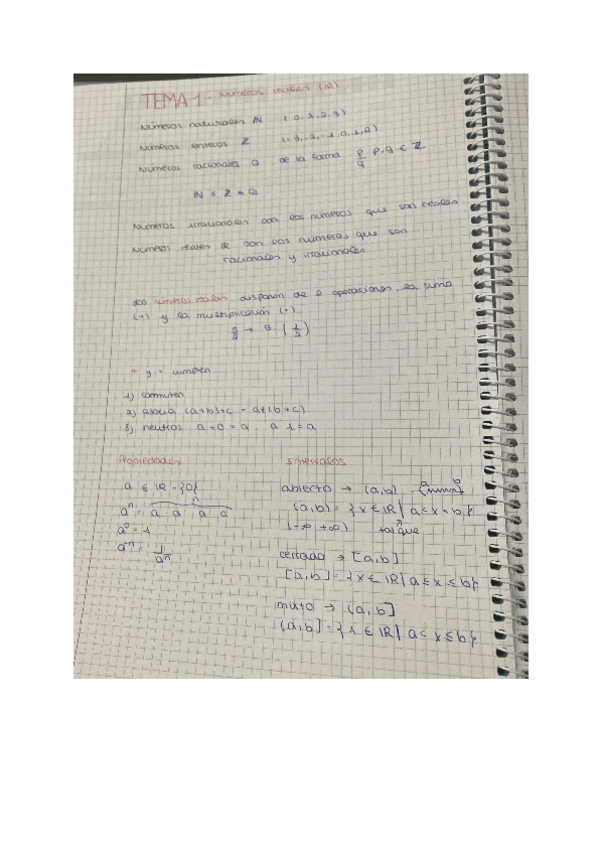 TEMA 1 - Números reales (ℝ)
Números naturales ℕ (0,1,2,3)
Números enteros ℤ (-3,-2,-1,0,1,2)
Números racionales ℚ de la forma p/q p,q ∈ ℤ
Números irracionales son los números que son reales
Números reales ℝ son los números que son
racionales y irracionales
Los números reales disponen de 2 operaciones, la suma
(+) y la multiplicación (·)
+ y · cumplen
1) conmutan
2) asocia (a+b)+c = a+(b+c)
3) neutros a+0=a, a·1=a
Propiedades
a ∈ ℝ - {0}
aⁿ = a · a · a · a
n
a⁰ = 1
a⁻ⁿ = 1/aⁿ
Intervalos
abierto → (a,b)
a b
(a,b) = {x ∈ ℝ | a < x < b}
(-∞, +∞) tal que
cerrado → [a,b]
[a,b] = {x ∈ ℝ | a ≤ x ≤ b}
mixto → (a,b]
(a,b] = {x ∈ ℝ | a < x ≤ b}